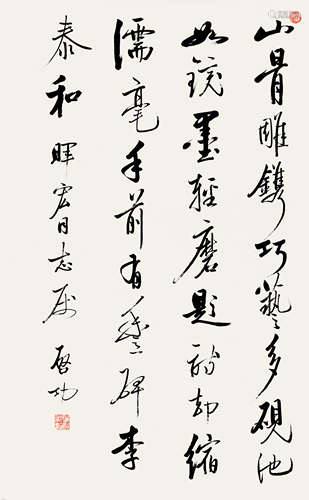 山骨雕镌巧艺多砚池
如镜墨轻磨题诗却缩
濡毫手前有丰碑李
泰和 晖宏同志属 启功